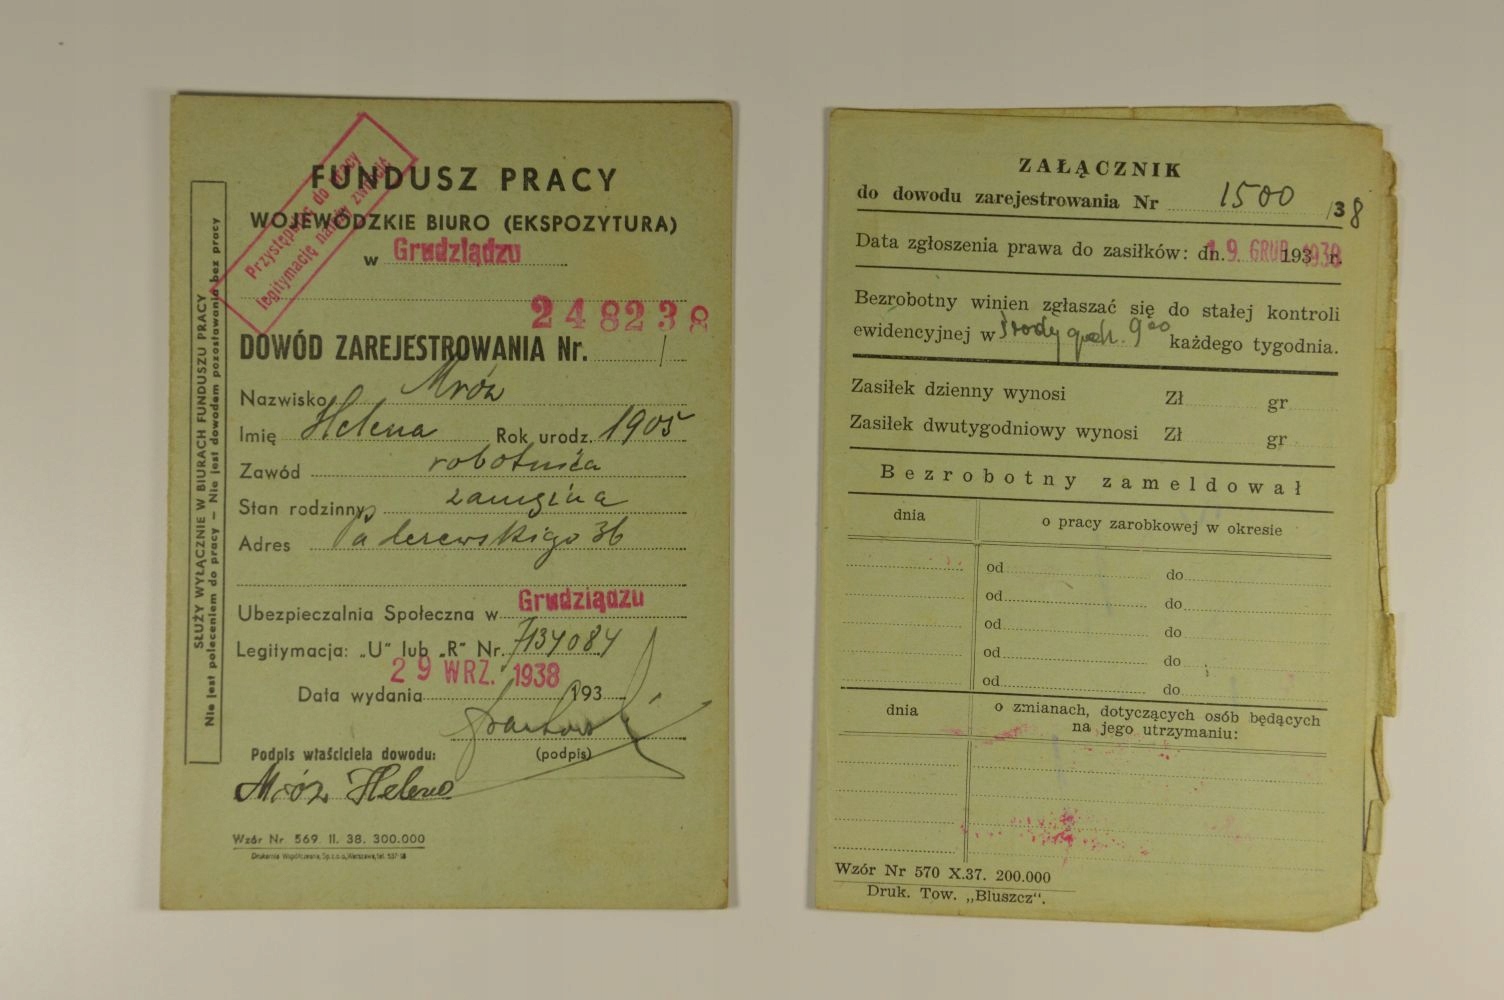 Przystępując do pracy
legitymację należy zwrócić
SŁUŻY WYŁĄCZNIE W BIURACH FUNDUSZU PRACY
Nie jest poleceniem do pracy — Nie jest dowodem pozostawania bez pracy
FUNDUSZ PRACY
WOJEWÓDZKIE BIURO (EKSPOZYTURA)
w Grudziądzu
248238
DOWÓD ZAREJESTROWANIA Nr. /
Nazwisko Mróz
Imię Helena Rok urodz. 1905
Zawód robotnica
Stan rodzinny zamężna
Adres Paderewskiego 36
Ubezpieczalnia Społeczna w Grudziądzu
Legitymacja: „U" lub „R" Nr. 7134084
29 WRZ. 1938
Data wydania 193
Podpis właściciela dowodu: (podpis)
Mróz Helena
Wzór Nr 569 II. 38. 300.000
Drukarnia Współczesna, Sp. z o. o., Warszawa, tel.
ZAŁĄCZNIK
do dowodu zarejestrowania Nr 1500 /38
Data zgłoszenia prawa do zasiłków: dn. 19 GRUD. 1938 193 r.
Bezrobotny winien zgłaszać się do stałej kontroli
ewidencyjnej w środy godz. 9⁰⁰ każdego tygodnia.
Zasiłek dzienny wynosi Zł gr
Zasiłek dwutygodniowy wynosi Zł gr
Bezrobotny zameldował
dnia o pracy zarobkowej w okresie
od do
od do
od do
od do
od do
dnia o zmianach, dotyczących osób będących
na jego utrzymaniu:
Wzór Nr 570 X.37. 200.000
Druk. Tow. „Bluszcz".